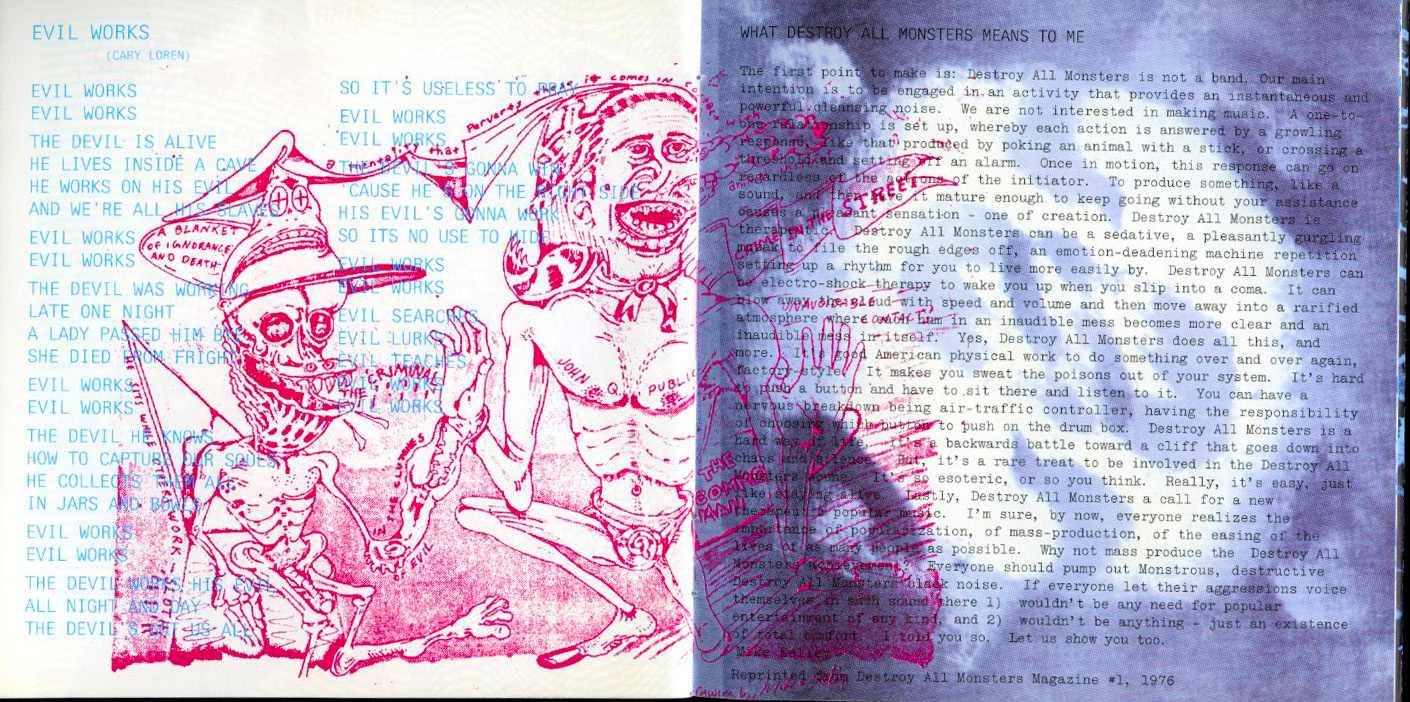 EVIL WORKS
(CARY LOREN)
EVIL WORKS
EVIL WORKS
THE DEVIL IS ALIVE
HE LIVES INSIDE A CAVE
HE WORKS ON HIS EVIL
AND WE'RE ALL HIS SLAVES
EVIL WORKS
EVIL WORKS
THE DEVIL WAS WORKING
LATE ONE NIGHT
A LADY PASSED HIM BYE
SHE DIED FROM FRIGHT
EVIL WORKS
EVIL WORKS
THE DEVIL HE KNOWS
HOW TO CAPTURE OUR SOULS
HE COLLECTS THEM ALL
IN JARS AND BOWLS
EVIL WORKS
EVIL WORKS
THE DEVIL WORKS HIS EVIL
ALL NIGHT AND DAY
THE DEVIL'S GOT US ALL
SO IT'S USELESS TO PRAY
EVIL WORKS
EVIL WORKS
THE DEVIL'S GONNA WIN
'CAUSE HE'S ON THE RIGHT SIDE
HIS EVIL'S GONNA WORK
SO ITS NO USE TO HIDE
EVIL WORKS
EVIL WORKS
EVIL SEARCHES
EVIL LURKS
EVIL TEACHES
EVIL WORKS
EVIL WORKS
A BLANKET
OF IGNORANCE
AND DEATH
Perverts
that
it comes in
THE CRIMINAL
JOHN Q PUBLIC
IN THE CLUTCHES
OF EVIL
WORK
STREET
THE
WHAT DESTROY ALL MONSTERS MEANS TO ME
The first point to make is: Destroy All Monsters is not a band. Our main
intention is to be engaged in an activity that provides an instantaneous and
powerful cleansing noise. We are not interested in making music. A one-to-
one relationship is set up, whereby each action is answered by a growling
response, like that produced by poking an animal with a stick, or crossing a
threshold and setting off an alarm. Once in motion, this response can go on
regardless of the actions of the initiator. To produce something, like a
sound, and then have it mature enough to keep going without your assistance
causes a pleasant sensation - one of creation. Destroy All Monsters is
therapeutic. Destroy All Monsters can be a sedative, a pleasantly gurgling
muzak to file the rough edges off, an emotion-deadening machine repetition
setting up a rhythm for you to live more easily by. Destroy All Monsters can
be electro-shock therapy to wake you up when you slip into a coma. It can
blow away the cloud with speed and volume and then move away into a rarified
atmosphere where each hum in an inaudible mess becomes more clear and an
inaudible mess in itself. Yes, Destroy All Monsters does all this, and
more. It's good American physical work to do something over and over again,
factory-style. It makes you sweat the poisons out of your system. It's hard
to push a button and have to sit there and listen to it. You can have a
nervous breakdown being air-traffic controller, having the responsibility
of choosing which button to push on the drum box. Destroy All Monsters is a
hard way of life. It's a backwards battle toward a cliff that goes down into
chaos and silence. But, it's a rare treat to be involved in the Destroy All
Monsters scene. It's so esoteric, or so you think. Really, it's easy, just
like staying alive. Lastly, Destroy All Monsters a call for a new
therapeutic popular music. I'm sure, by now, everyone realizes the
importance of popularization, of mass-production, of the easing of the
lives of as many people as possible. Why not mass produce the Destroy All
Monsters achievement? Everyone should pump out Monstrous, destructive
Destroy All Monsters black noise. If everyone let their aggressions voice
themselves in such sound there 1) wouldn't be any need for popular
entertainment of any kind, and 2) wouldn't be anything - just an existence
of total comfort. I told you so. Let us show you too.
Mike Kelley
Reprinted from Destroy All Monsters Magazine #1, 1976